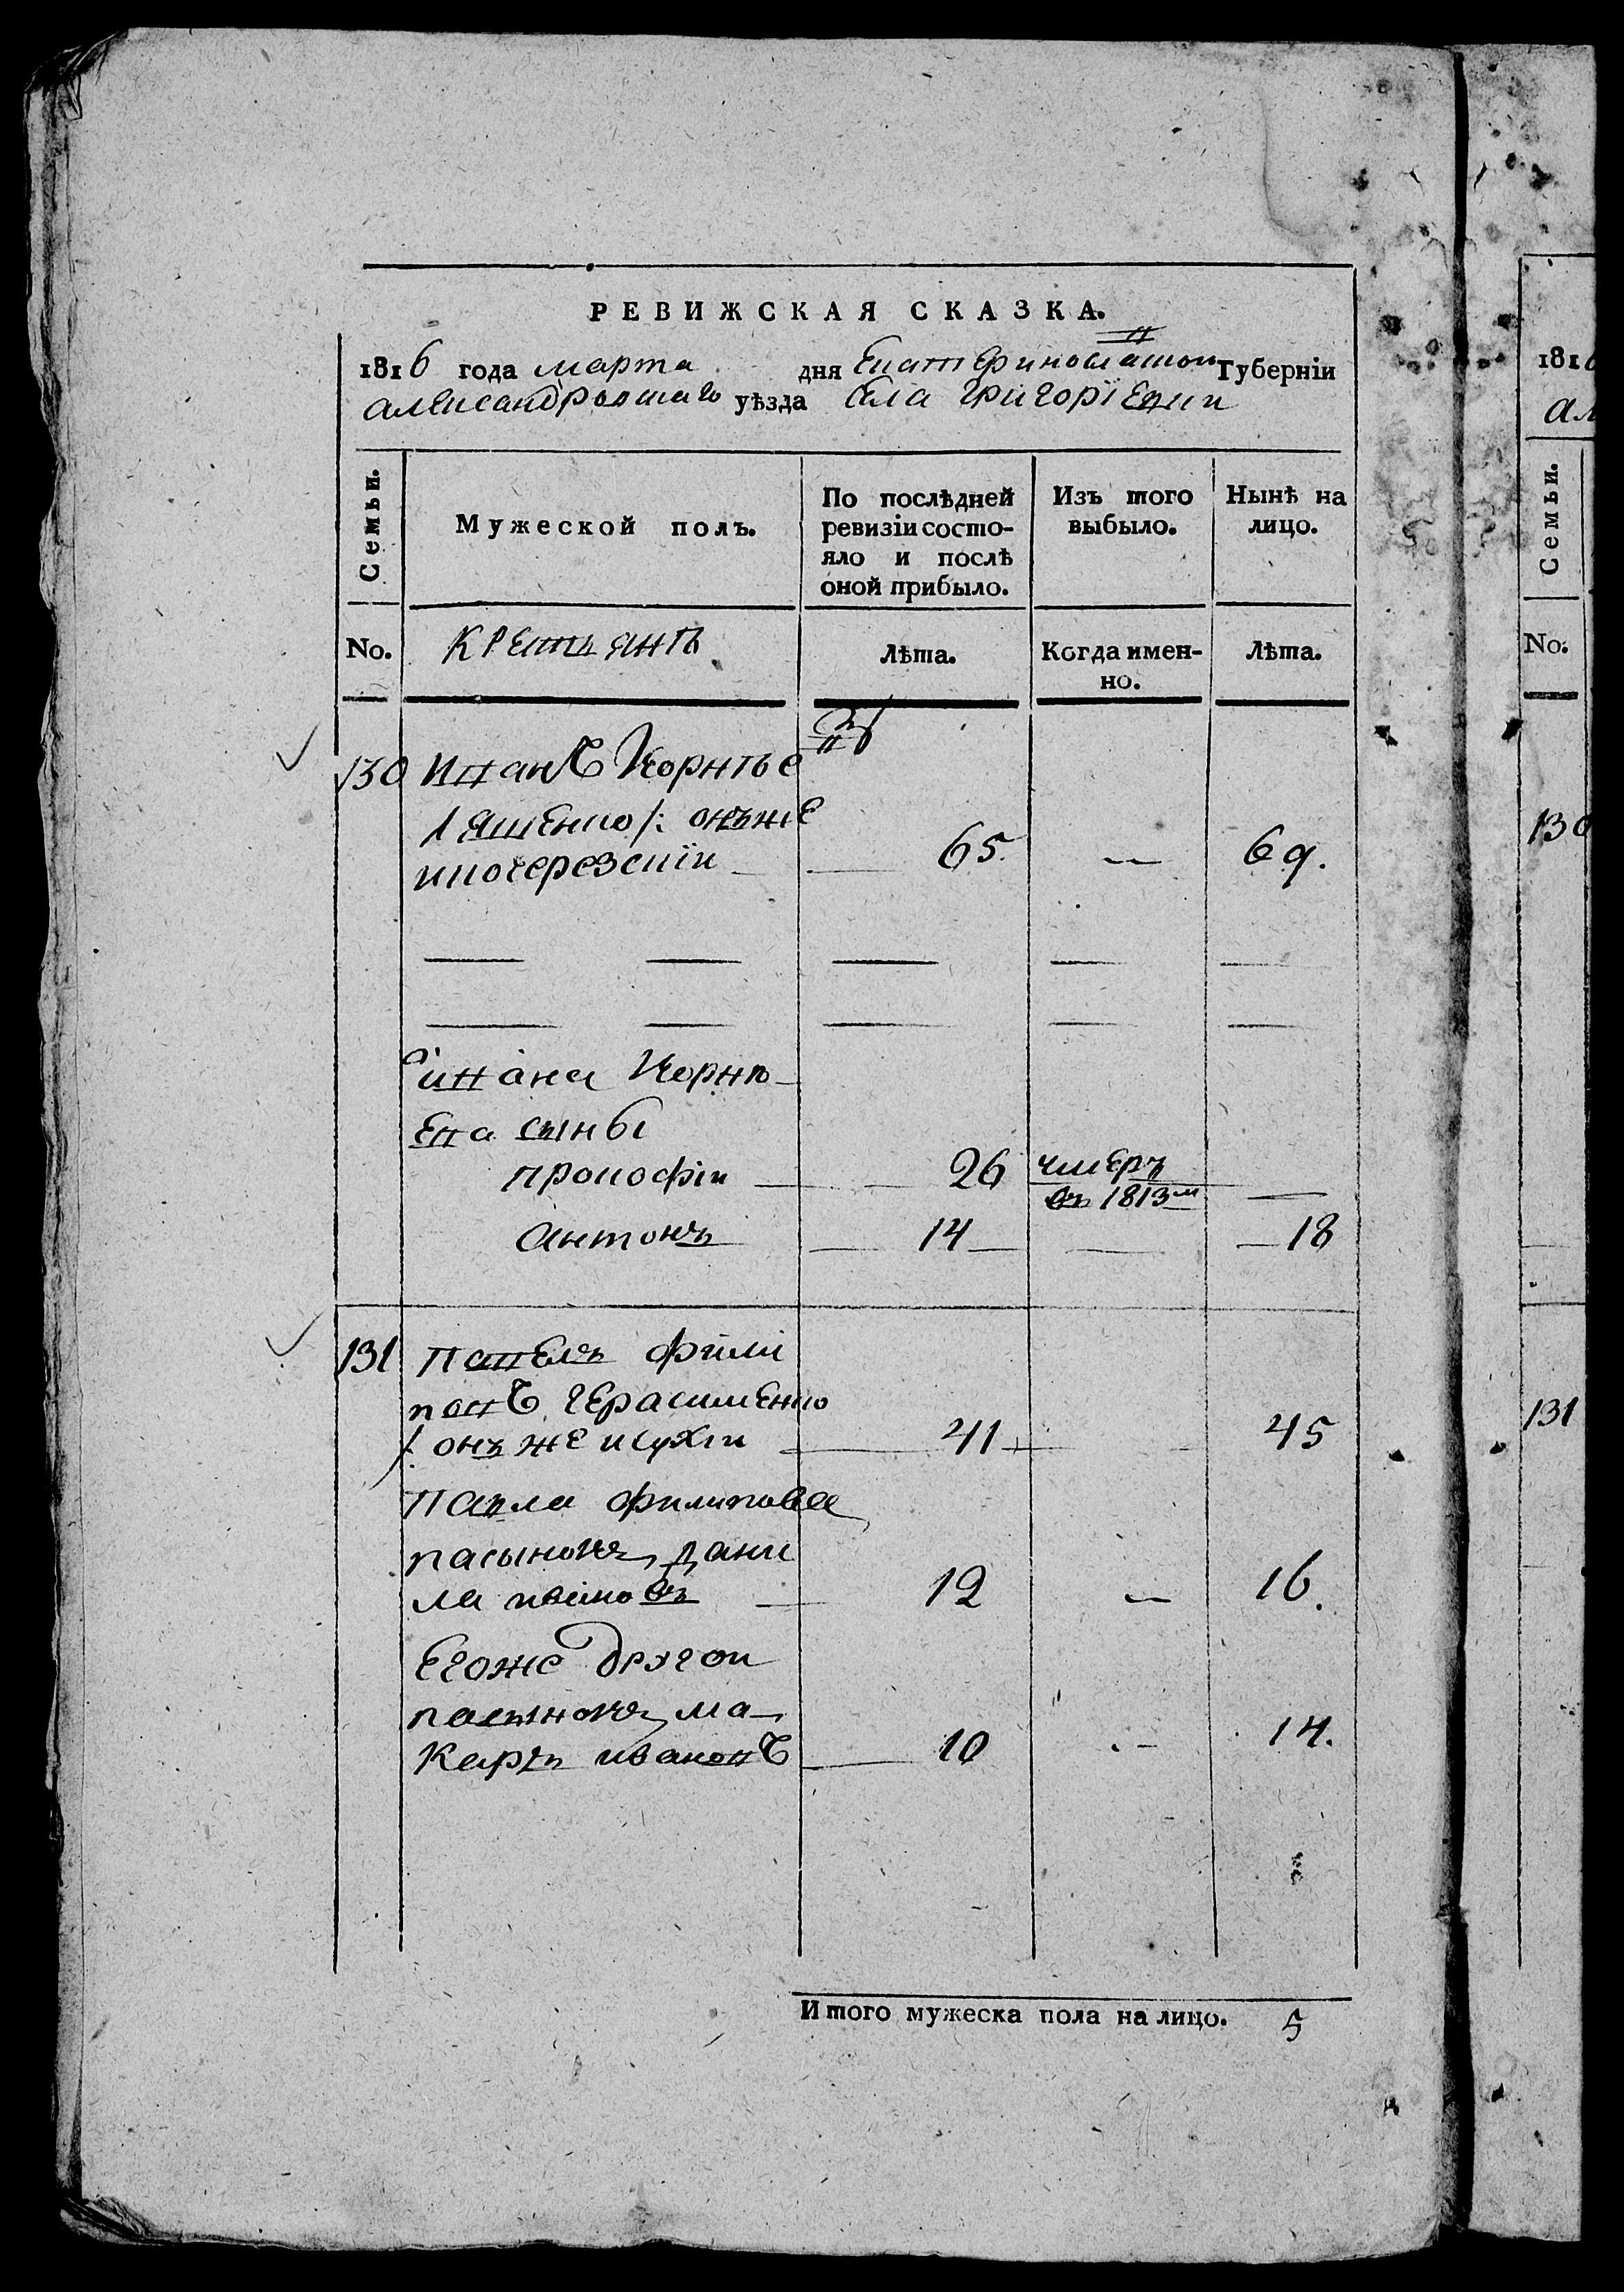 РЕВИЖСКАЯ СКАЗКА.
1816 года марта дня Екатеринославской Губерніи
александровскаго уѣзда села григорїевки
Семьи. Мужеской полъ. По послѣдней ревизіи состо-яло и послѣ оной прибыло. Изъ того выбыло. Нынѣ на лицо.
No. крестьянъ Лѣта. Когда имен-но. Лѣта.
130 иванъ Корнѣе
въ
ляшенко /: онъже
и 65. — 69.
ивана Корнѣ-
ева сыны
прокофіи 26 умеръ въ 1813м —
антонъ 14 — 18
131 павелъ фили
повъ герасименко
/: онъ же и сухіи 41 45
павла филипова
пасынокъ дани
ла 12 — 16.
егоже другои
пасынокъ ма-
каръ ивановъ 10 — 14.
Итого мужеска пола на лицо. 5
181
ал
Семьи.
No.
130
131